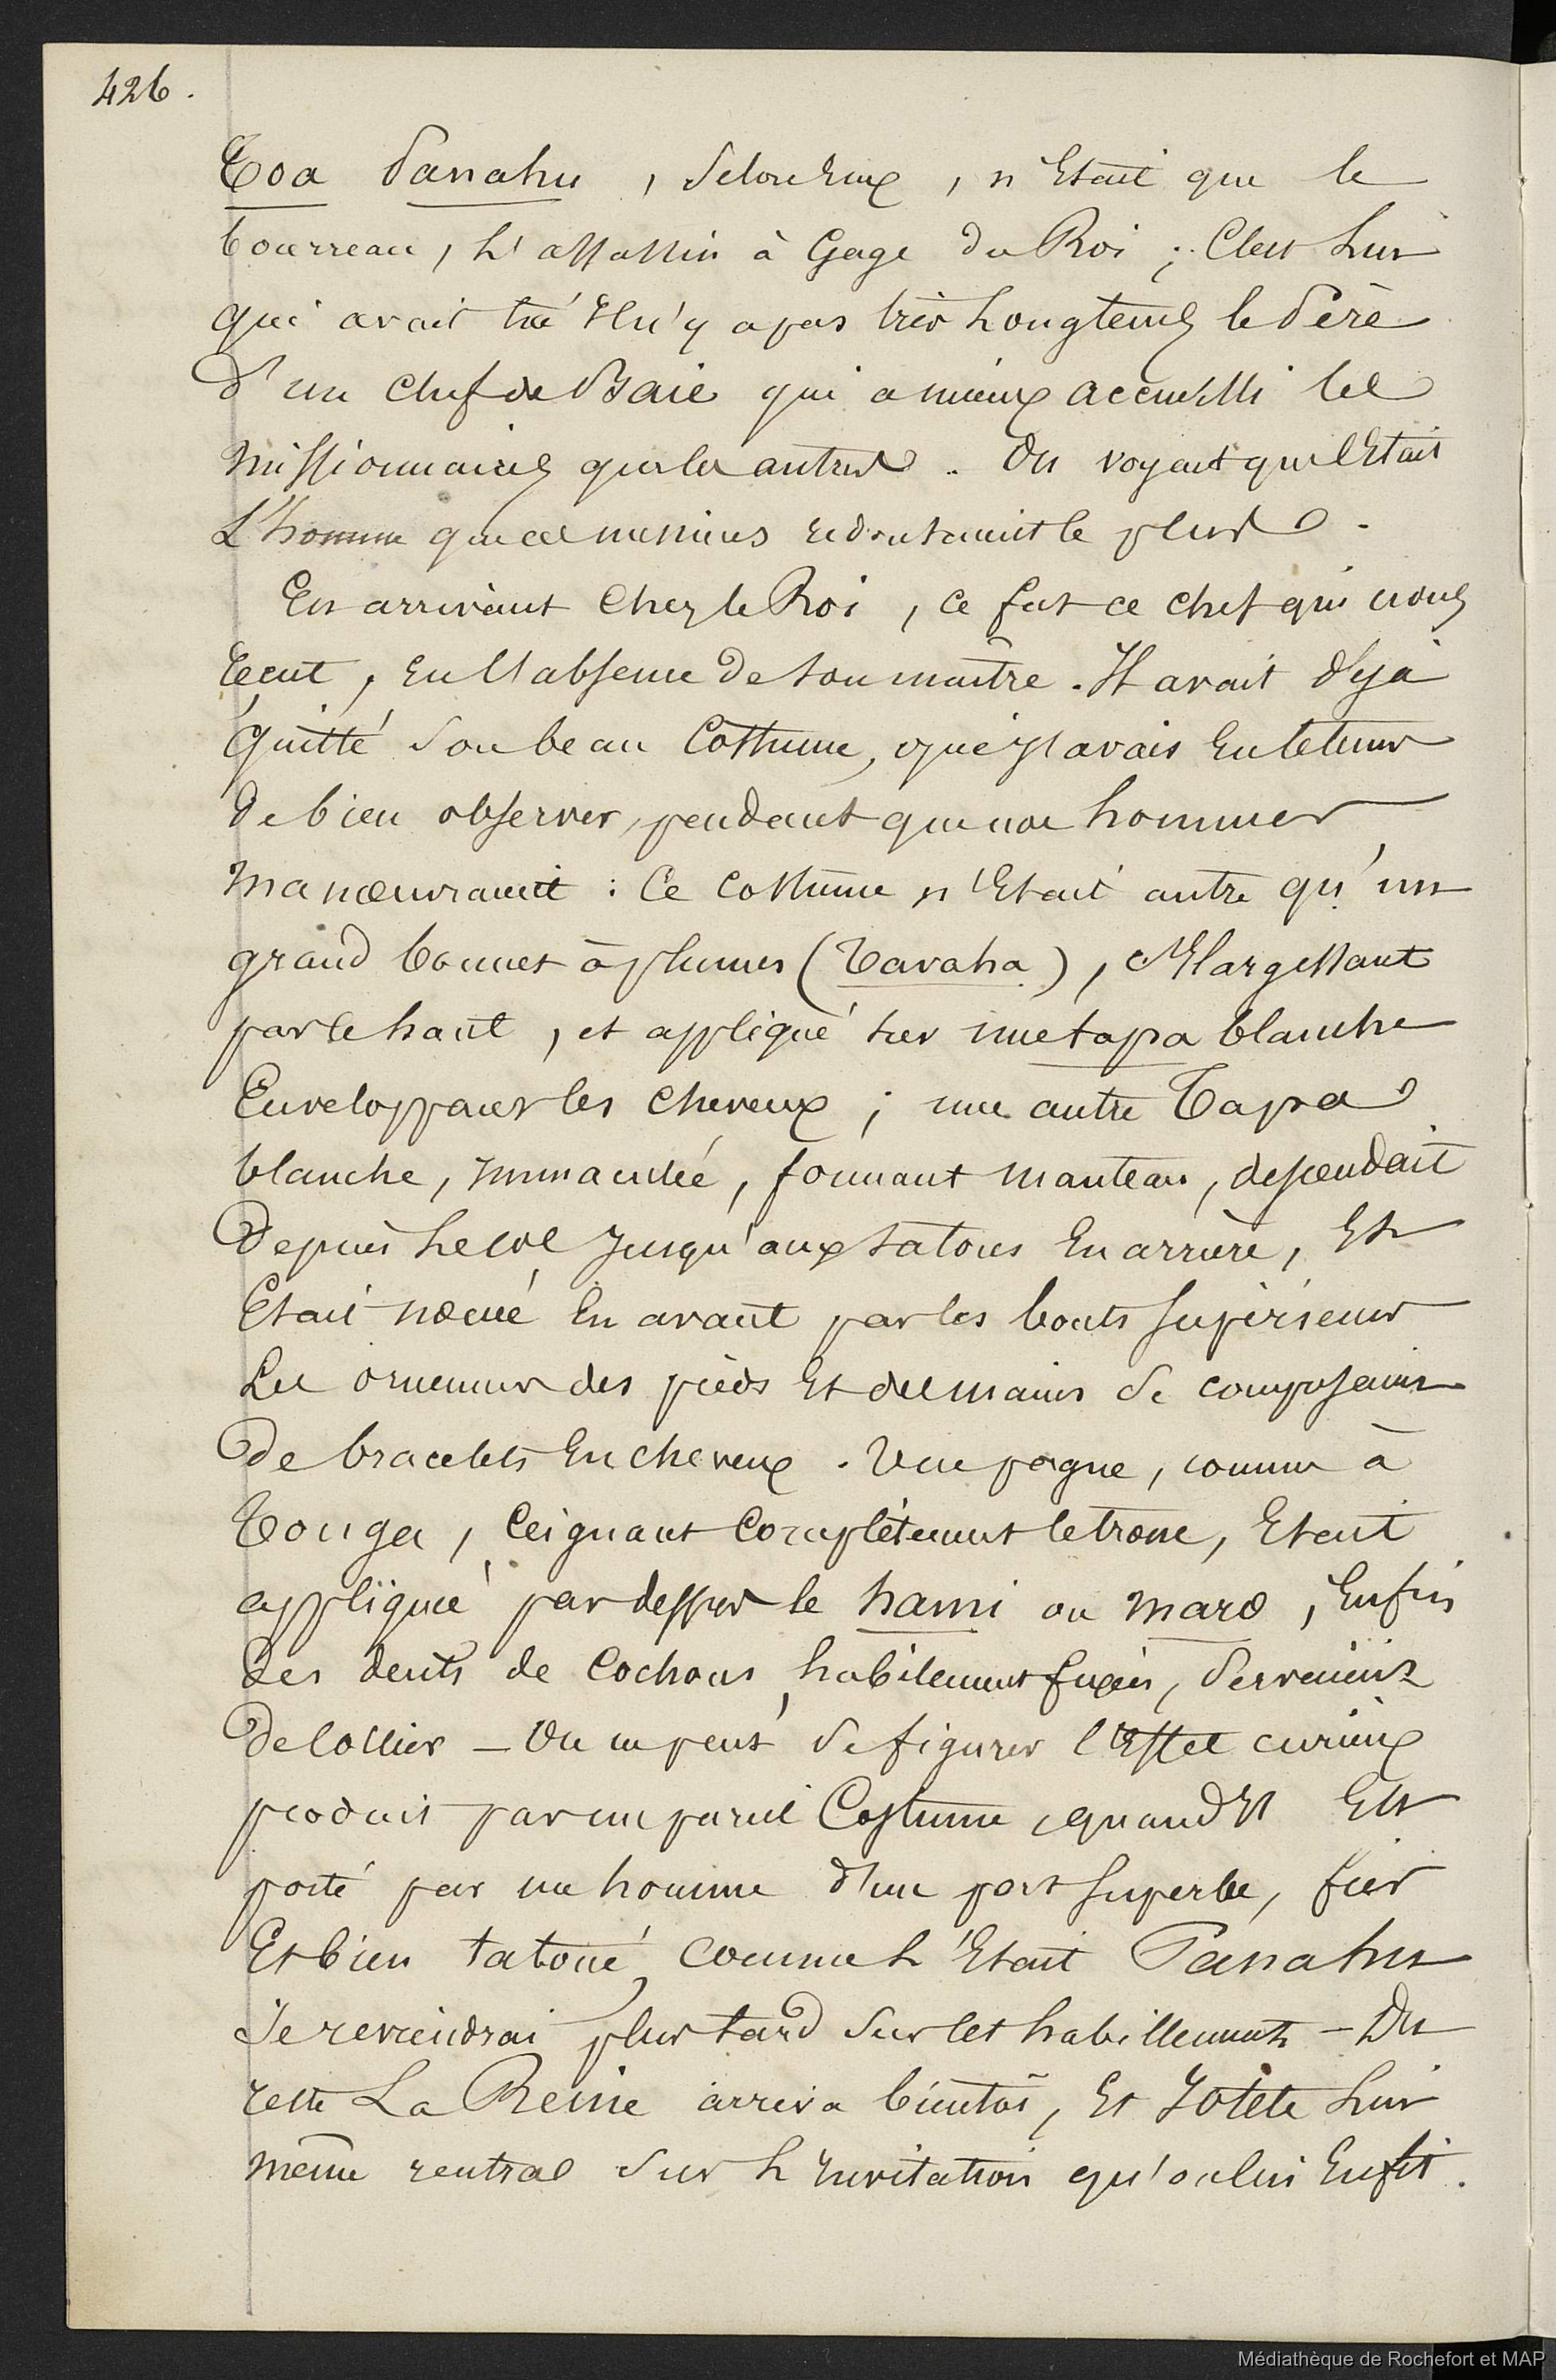 426.
Toa Panahu, selon eux, n'Etait que le
bourreau, L'assassin à Gage du Roi ; C'est Lui
qui avait tué Il n'y a pas très Longtems le Père
d'un chef de Baie qui a mieux accueilli les
missionnaires que les autres. On voyait qu'il Etait
L'homme que ces messieurs redoutaient le plus.
En arrivant Chez le Roi, ce fut ce chef qui nous
reçut, en l'absence de son maître. Il avait déjà
quitté son beau Costume, que j'avais Eu le tems
de bien observer, pendant que nos hommes
manœuvraient : Ce costume n'Etait autre qu'un
grand bonnet à plumes (Tavaha), s'Elargissant
par le haut, et appliqué sur une tapa blanche
Enveloppant les cheveux ; une autre Tapa
blanche, Immaculée, formant manteau, descendait
Depuis Le col Jusqu'aux talons En arrière, Et
Etait nouée En avant par les bouts supérieurs
Les ornemens des pieds Et des mains se composaient
De bracelets En cheveux. Une pagne, comme à
Tonga, Ceignant Complètement le tronc, Etait
appliquée par dessus le hami ou maro, Enfin
des dents de Cochons, habilement fixées, servaient
De Collier – On ne peut se figurer l'Effet curieux
produit par un pareil Costume, quand Il Est
porté par un homme d'un port superbe, fier
Et bien tatoué, comme L'Etait Panahu
Je reviendrai plus tard sur les habillements – Du
reste La Reine arriva bientôt, Et Iotété Lui
même rentra sur L'Invitation qu'on lui En fit.
Médiathèque de Rochefort et MAP